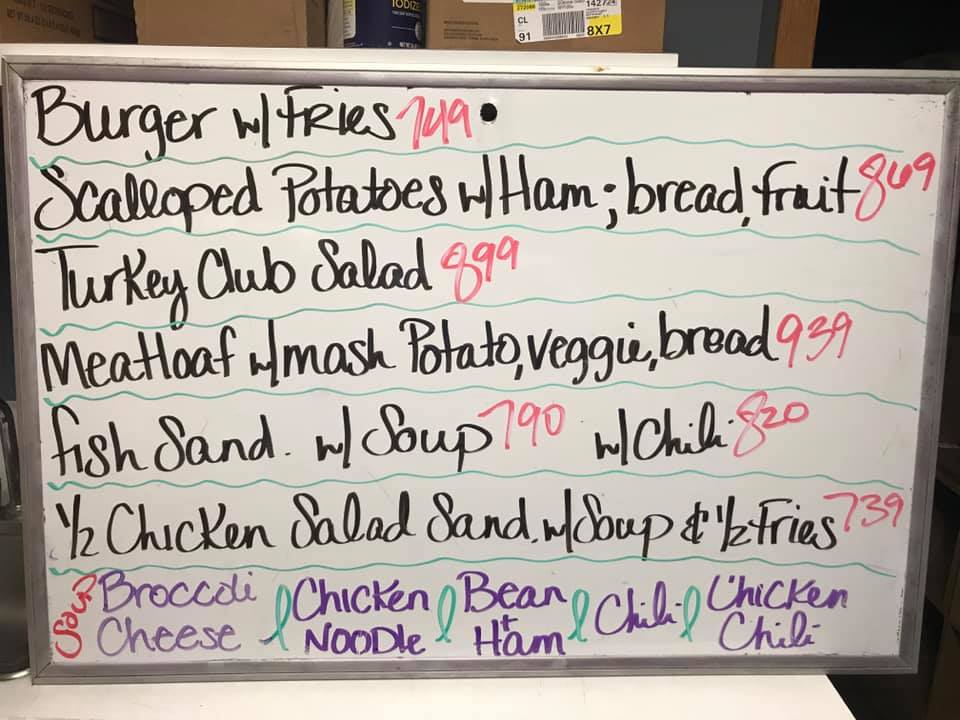 IODIZE
CL
91
142724
8X7
Burger w/ Fries 749
Scalloped Potatoes w/ Ham; bread, fruit 869
Turkey Club Salad 899
Meatloaf w/ mash Potato, veggie, bread 939
fish Sand. w/ Soup 790 w/ Chili 820
1/2 Chicken Salad Sand. w/ Soup & 1/2 Fries 739
Soup
Broccoli Cheese
Chicken Noodle
Bean + Ham
Chili
Chicken Chili